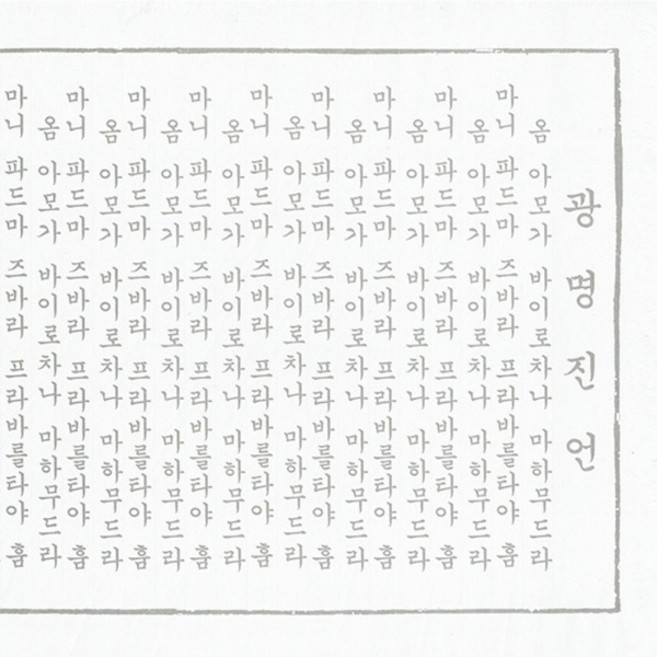 광명진언
옴 아모가 바이로차나 마하무드라
마니 파드마 즈바라 프라바를타야 훔
옴 아모가 바이로차나 마하무드라
마니 파드마 즈바라 프라바를타야 훔
옴 아모가 바이로차나 마하무드라
마니 파드마 즈바라 프라바를타야 훔
옴 아모가 바이로차나 마하무드라
마니 파드마 즈바라 프라바를타야 훔
옴 아모가 바이로차나 마하무드라
마니 파드마 즈바라 프라바를타야 훔
옴 아모가 바이로차나 마하무드라
마니 파드마 즈바라 프라바를타야 훔
옴 아모가 바이로차나 마하무드라
마니 파드마 즈바라 프라바를타야 훔
옴 아모가 바이로차나 마하무드라
마니 파드마 즈바라 프라바를타야 훔
옴 아모가 바이로차나 마하무드라
마니 파드마 즈바라 프라바를타야 훔